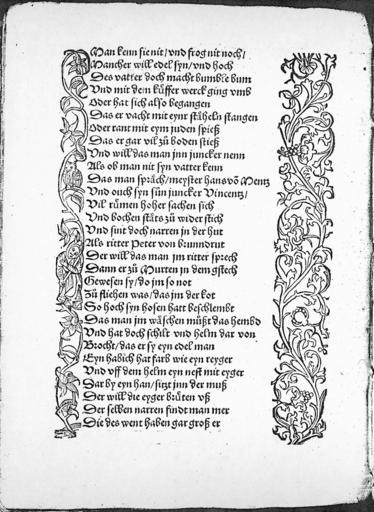 Man kenn sie nit/vnd frog nit noch/
Mancher will edel syn/vnd hoch
Des vatter doch macht bumble bum
Vnd mit dem küffer werck ging vmb
Oder hat sich also begangen
Das er vacht mit eynr stäheln stangen
Oder rant mit eym juden spieß
Das er gar vil zů boden stieß
Vnd will das man jnn juncker nenn
Als ob man nit syn vatter kenn
Das man spräch/meyster hans võ Mentz
Vnd ouch syn sün juncker Vincentz/
Vil rümen hoher sachen sich
Vnd bochen stäts zů wider stich
Vnd sint doch narren jn der hut
Als ritter Peter von brunndrut
Der will das man jm ritter sprech
Dann er zů Murten jn dem gstech
Gewesen sy/do jm so not
Zů fliehen was/das jm der kot
So hoch syn hosen hatt beschlembt
Das man jm wäschen můßt das hembd
Vnd hat doch schilt vnd helm dar von
Brocht/das er sy eyn edel man
Eyn habich hat farb wie eyn reyger
Vnd vff dem helm eyn nest mit eyger
Dar by eyn han/sitzt jnn der muß
Der will die eyger brůten vß
Der selben narren findt man mer
Die des went haben gar groß er